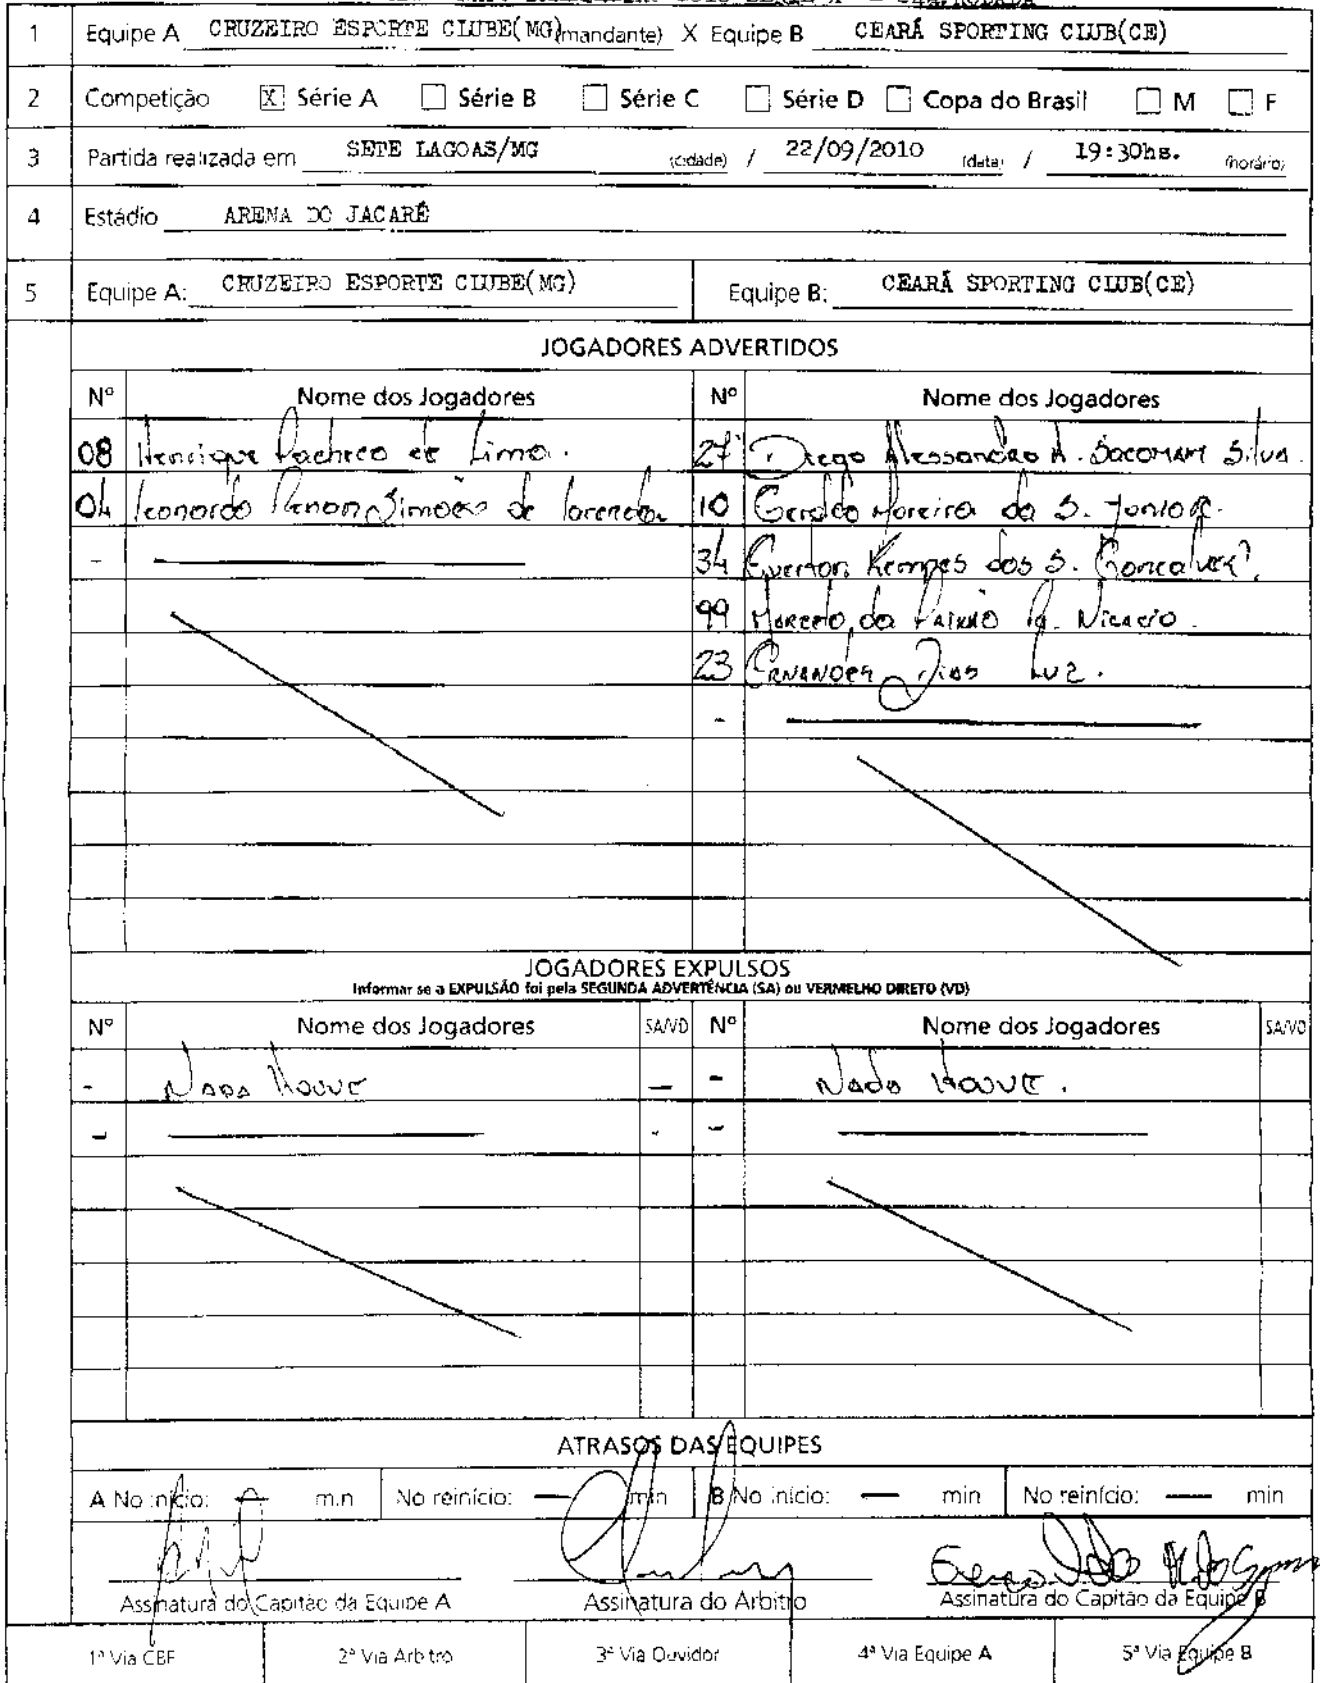 1 Equipe A CRUZEIRO ESPORTE CLUBE(MG) (mandante) X Equipe B CEARÁ SPORTING CLUB(CE)
2 Competição X Série A Série B Série C Série D Copa do Brasil M F
3 Partida realizada em SETE LAGOAS/MG (cidade) / 22/09/2010 (data) / 19:30hs. (horário)
4 Estádio ARENA DO JACARÉ
5 Equipe A: CRUZEIRO ESPORTE CLUBE(MG) Equipe B: CEARÁ SPORTING CLUB(CE)
JOGADORES ADVERTIDOS
Nº Nome dos Jogadores Nº Nome dos Jogadores
08 Henrique Pacheco de Lima. 27 Diego Alessandro A. Sacoman Silva.
04 Leonardo Renan Simões de Lacerda 10 Geraldo Moreira da S. Junior.
- 34 Everton Kempes dos S. Gonçalves.
99 Marcelo da Paixão R. Nicacio.
23 Ernandes Dias Luz.
-
JOGADORES EXPULSOS
Informar se a EXPULSÃO foi pela SEGUNDA ADVERTÊNCIA (SA) ou VERMELHO DIRETO (VD)
Nº Nome dos Jogadores SA/VD Nº Nome dos Jogadores SA/VD
- Nada Houve - - Nada Houve.
- - -
ATRASOS DAS EQUIPES
A No início: — min No reinício: — min B No início: — min No reinício: — min
Assinatura do Capitão da Equipe A Assinatura do Árbitro Assinatura do Capitão da Equipe B
1ª Via CBF 2ª Via Árbitro 3ª Via Ouvidor 4ª Via Equipe A 5ª Via Equipe B